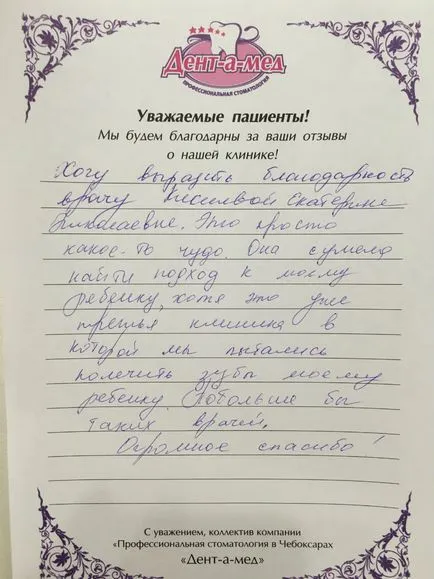 Дент-а-мед
ПРОФЕССИОНАЛЬНАЯ СТОМАТОЛОГИЯ
Уважаемые пациенты!
Мы будем благодарны за ваши отзывы
о нашей клинике!
Хочу выразить благодарность
врачу Екатерине
Николаевне. Это просто
какое-то чудо. Она сумела
найти подход к моему
ребенку, хотя это уже
третья клиника в
которой мы пытались
полечить зубы моему
ребенку. Побольше бы
таких врачей.
Огромное спасибо!
С уважением, коллектив компании
«Профессиональная стоматология в Чебоксарах
«Дент-а-мед»